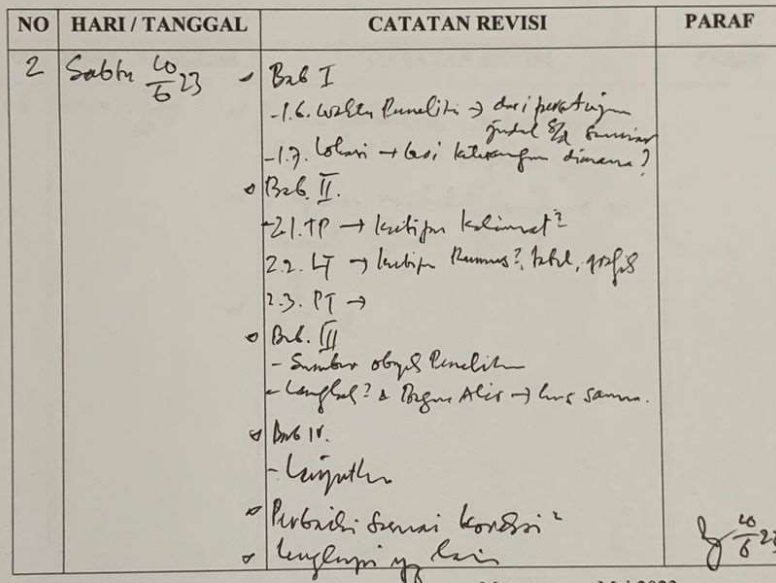 NO HARI / TANGGAL CATATAN REVISI PARAF
2 Sabtu 10/6 23
Bab I
- 1.6. Waktu Peneliti → dari persetujuan
judul s/d seminar
- 1.7. Lokasi → beri keterangan dimana?
Bab. II.
- 2.1. TP → kutipan kalimat²
2.2. LT → kutipan Rumus², tabel, grafis
2.3. PT →
Bab. III
- Sumber obyek Penelitian
- Langkah² & Bagan Alir → hrs sama.
Bab IV.
- Lanjutkan
Perbaiki sesuai koreksi²
lengkapi yg lain
10/6 23